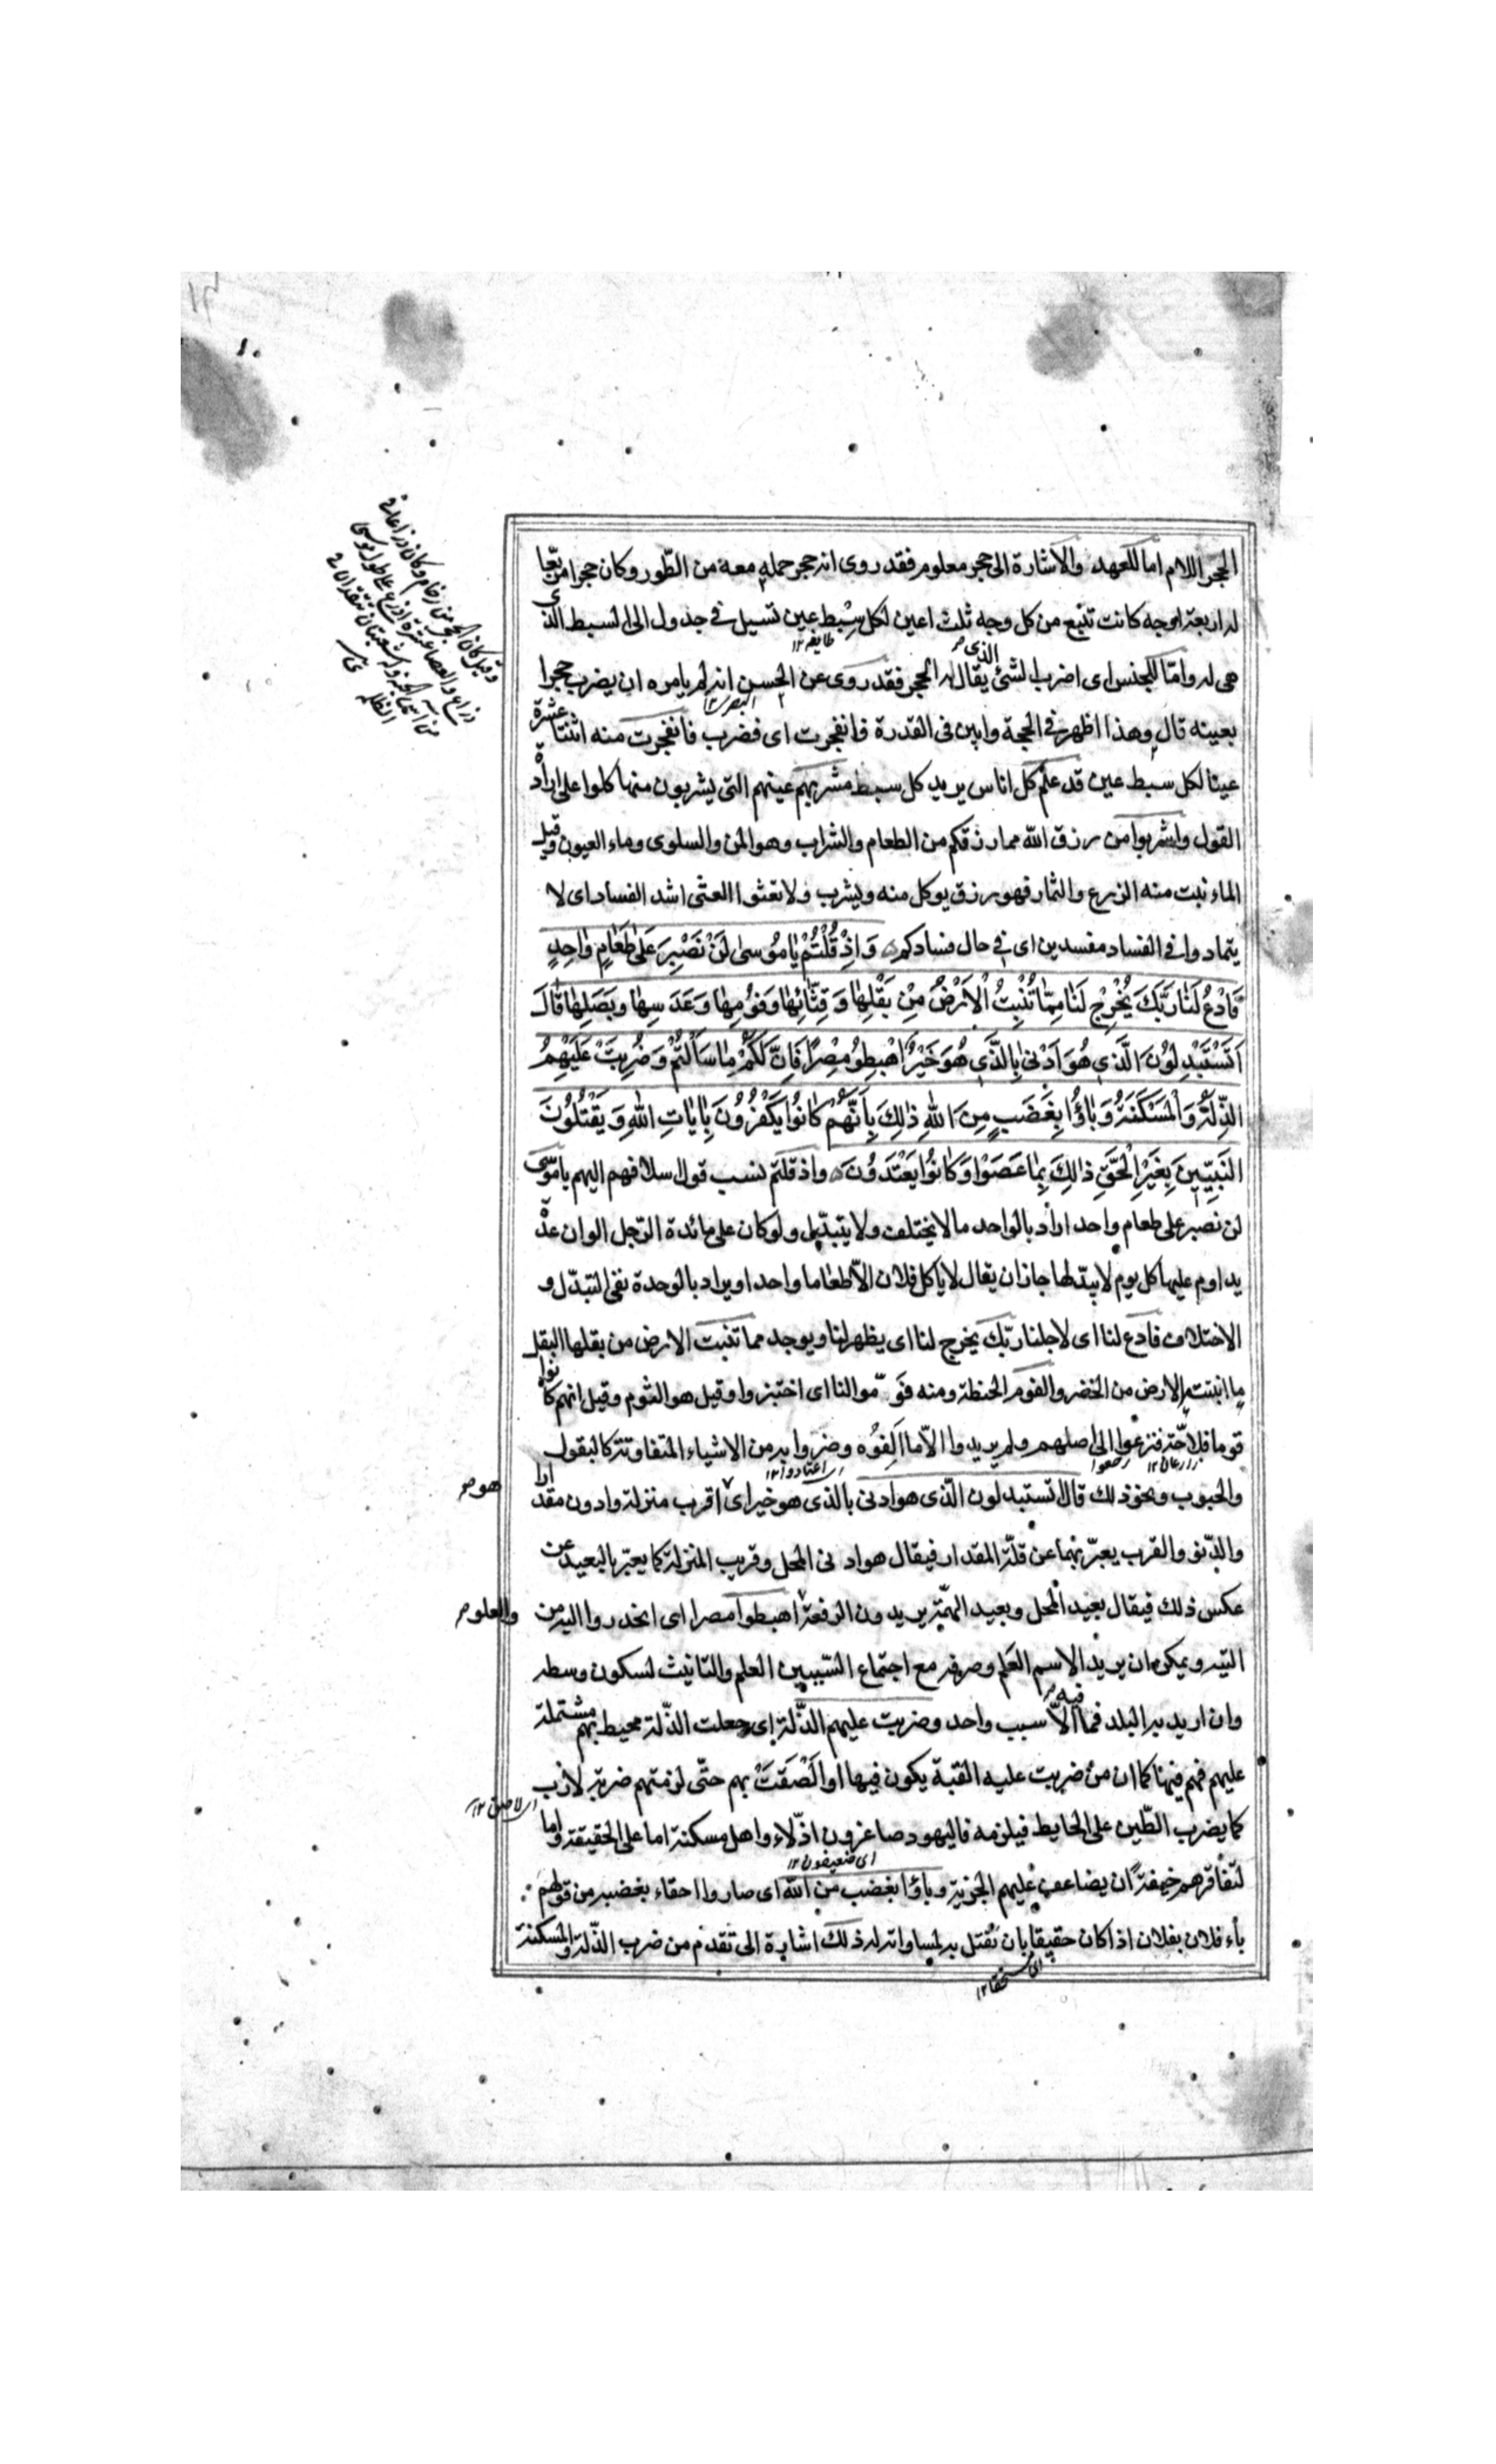 الحجر اللام اما للعهد والاشارة الى حجر معلوم فقد روى انه حجر حمله معه من الطّور وكان حجرا مربّعا
له اربعة اوجه كانت تنبع من كل وجه ثلث اعين لكل سِبْط عين تسيل فى جدول الى السبط الذى
طايفه ١٢
هى له وامّا للجنس اى اضرب الشئ الذى يقال له الحجر فقد روى عن الحسن انه لم يامره ان يضرب حجرا
البصرى ١٢
بعينه قال وهذا اظهر فى الحجة وابين فى القدرة فانفجرت اى فضرب فانفجرت منه اثنتا عشرة
عينا لكل سبط عين قد علم كل اناس يريد كل سبط مشربهم عينهم التى يشربون منها كلوا على ارادة
القول واشربوا من رزق الله مما رزقكم من الطعام والشراب وهو المن والسلوى وماء العيون وقيل
الماء نبت منه الزرع والثمار فهو رزق يوكل منه ويشرب ولا تعثوا العثى اشد الفساد اى لا
يتمادوا فى الفساد مفسدين اى فى حال فسادكم وَاِذْ قُلْتُمْ يٰا مُوسىٰ لَنْ نَصْبِرَ عَلىٰ طَعٰامٍ وٰاحِدٍ
فَادْعُ لَنٰا رَبَّكَ يُخْرِجْ لَنٰا مِمّٰا تُنْبِتُ الْاَرْضُ مِنْ بَقْلِهٰا وَ قِثّٰائِهٰا وَفُوْمِهٰا وَعَدَسِهٰا وَبَصَلِهٰا قٰالَ
اَتَسْتَبْدِلُوْنَ الَّذِي هُوَ اَدْنىٰ بِالَّذِي هُوَ خَيْرٌ اهْبِطُو مِصْرًا فَاِنَّ لَكُمْ مٰا سَاَلْتُمْ وَضُرِبَتْ عَلَيْهِمُ
الذِّلَّةُ وَالْمَسْكَنَةُ وَبٰاؤُا بِغَضَبٍ مِنَ اللّٰهِ ذٰلِكَ بِاَنَّهُمْ كٰانُوا يَكْفُرُوْنَ بِاٰيٰاتِ اللّٰهِ وَ يَقْتُلُوْنَ
النَّبِيّٖينَ بِغَيْرِ الْحَقِّ ذٰلِكَ بِمٰا عَصَوْا وَكٰانُوا يَعْتَدُوْنَ واذ قلتم نسب قول سلافهم اليهم يا موسى
لن نصبر على طعام واحد اراد بالواحد ما لا يختلف ولا يتبدّل ولو كان على مائدة الرّجل الوان عدّة
يداوم عليها كل يوم لا يبدلها جاز ان يقال لا ياكل فلان الّا طعاما واحدا ويراد بالوحدة نفى التبدّل و
الاختلاف فادع لنا اى لاجلنا ربّك يخرج لنا اى يظهر لنا ويوجد مما تنبت الارض من بقلها البقل
ما انبتته الارض من الخضر والفوم الحنطة ومنه فَوّموا لنا اى اختبزوا وقيل هو الثوم وقيل انهم كانوا
قوما فلّاحّة فنزعوا الى اصلهم ولم يريدوا الّا ما اَلِفوُه وضروا به من الاشياء المتفاوتة كالبقول
زارعان ١٢ رجعوا اى اعتادوا ١٢
والحبوب ونحو ذلك قال اتستبدلون الّذى هو ادنى بالذى هو خير اى اقرب منزلة وادون مقدارا
هو
والدّنو والقرب يعبّر بهما عن قلّة المقدار فيقال هو ادنى المحل وقريب المنزلة كما يعبّر بالبعيد عن
عكس ذلك فيقال بعيد المحل وبعيد الهمّة يريدون الرفعة اهبطوا مصرا اى انحدروا اليه من
والعلو
التيه ويمكن ان يريد الاسم العَلم وصرفه مع اجتماع السّببين العلم والتانيث لسكون وسطه
وان اريد به البلد فما فيه الّا سبب واحد وضربت عليهم الذّلة اى جعلت الذّلة محيط بهم مشتملة
عليهم فهم فيها كما ان من ضربت عليه القبة يكون فيها او اَلْصَقَتْ بهم حتّى لزمتهم ضربة لازب
اى لاصق ١٢
كما يضرب الطّين على الحايط فيلزمه فاليهود صاغرون اذّلاء واهل مسكنة اما على الحقيقة واما
اى ضعيفون ١٢
لتفاقرهم خيفةً ان يضاعف عليهم الجزية وباؤا بغضب من الله اى صاروا احقاء بغضبه من قولهم
بآء فلان بفلان اذا كان حقيقا بان يُقتل به لمساواته له ذلك اشارة الى تقدم من ضرب الذّلة والمسكنة
اى مستحقا ١٢
وقيل كان الحجر من رخام وكان ذراعا فى